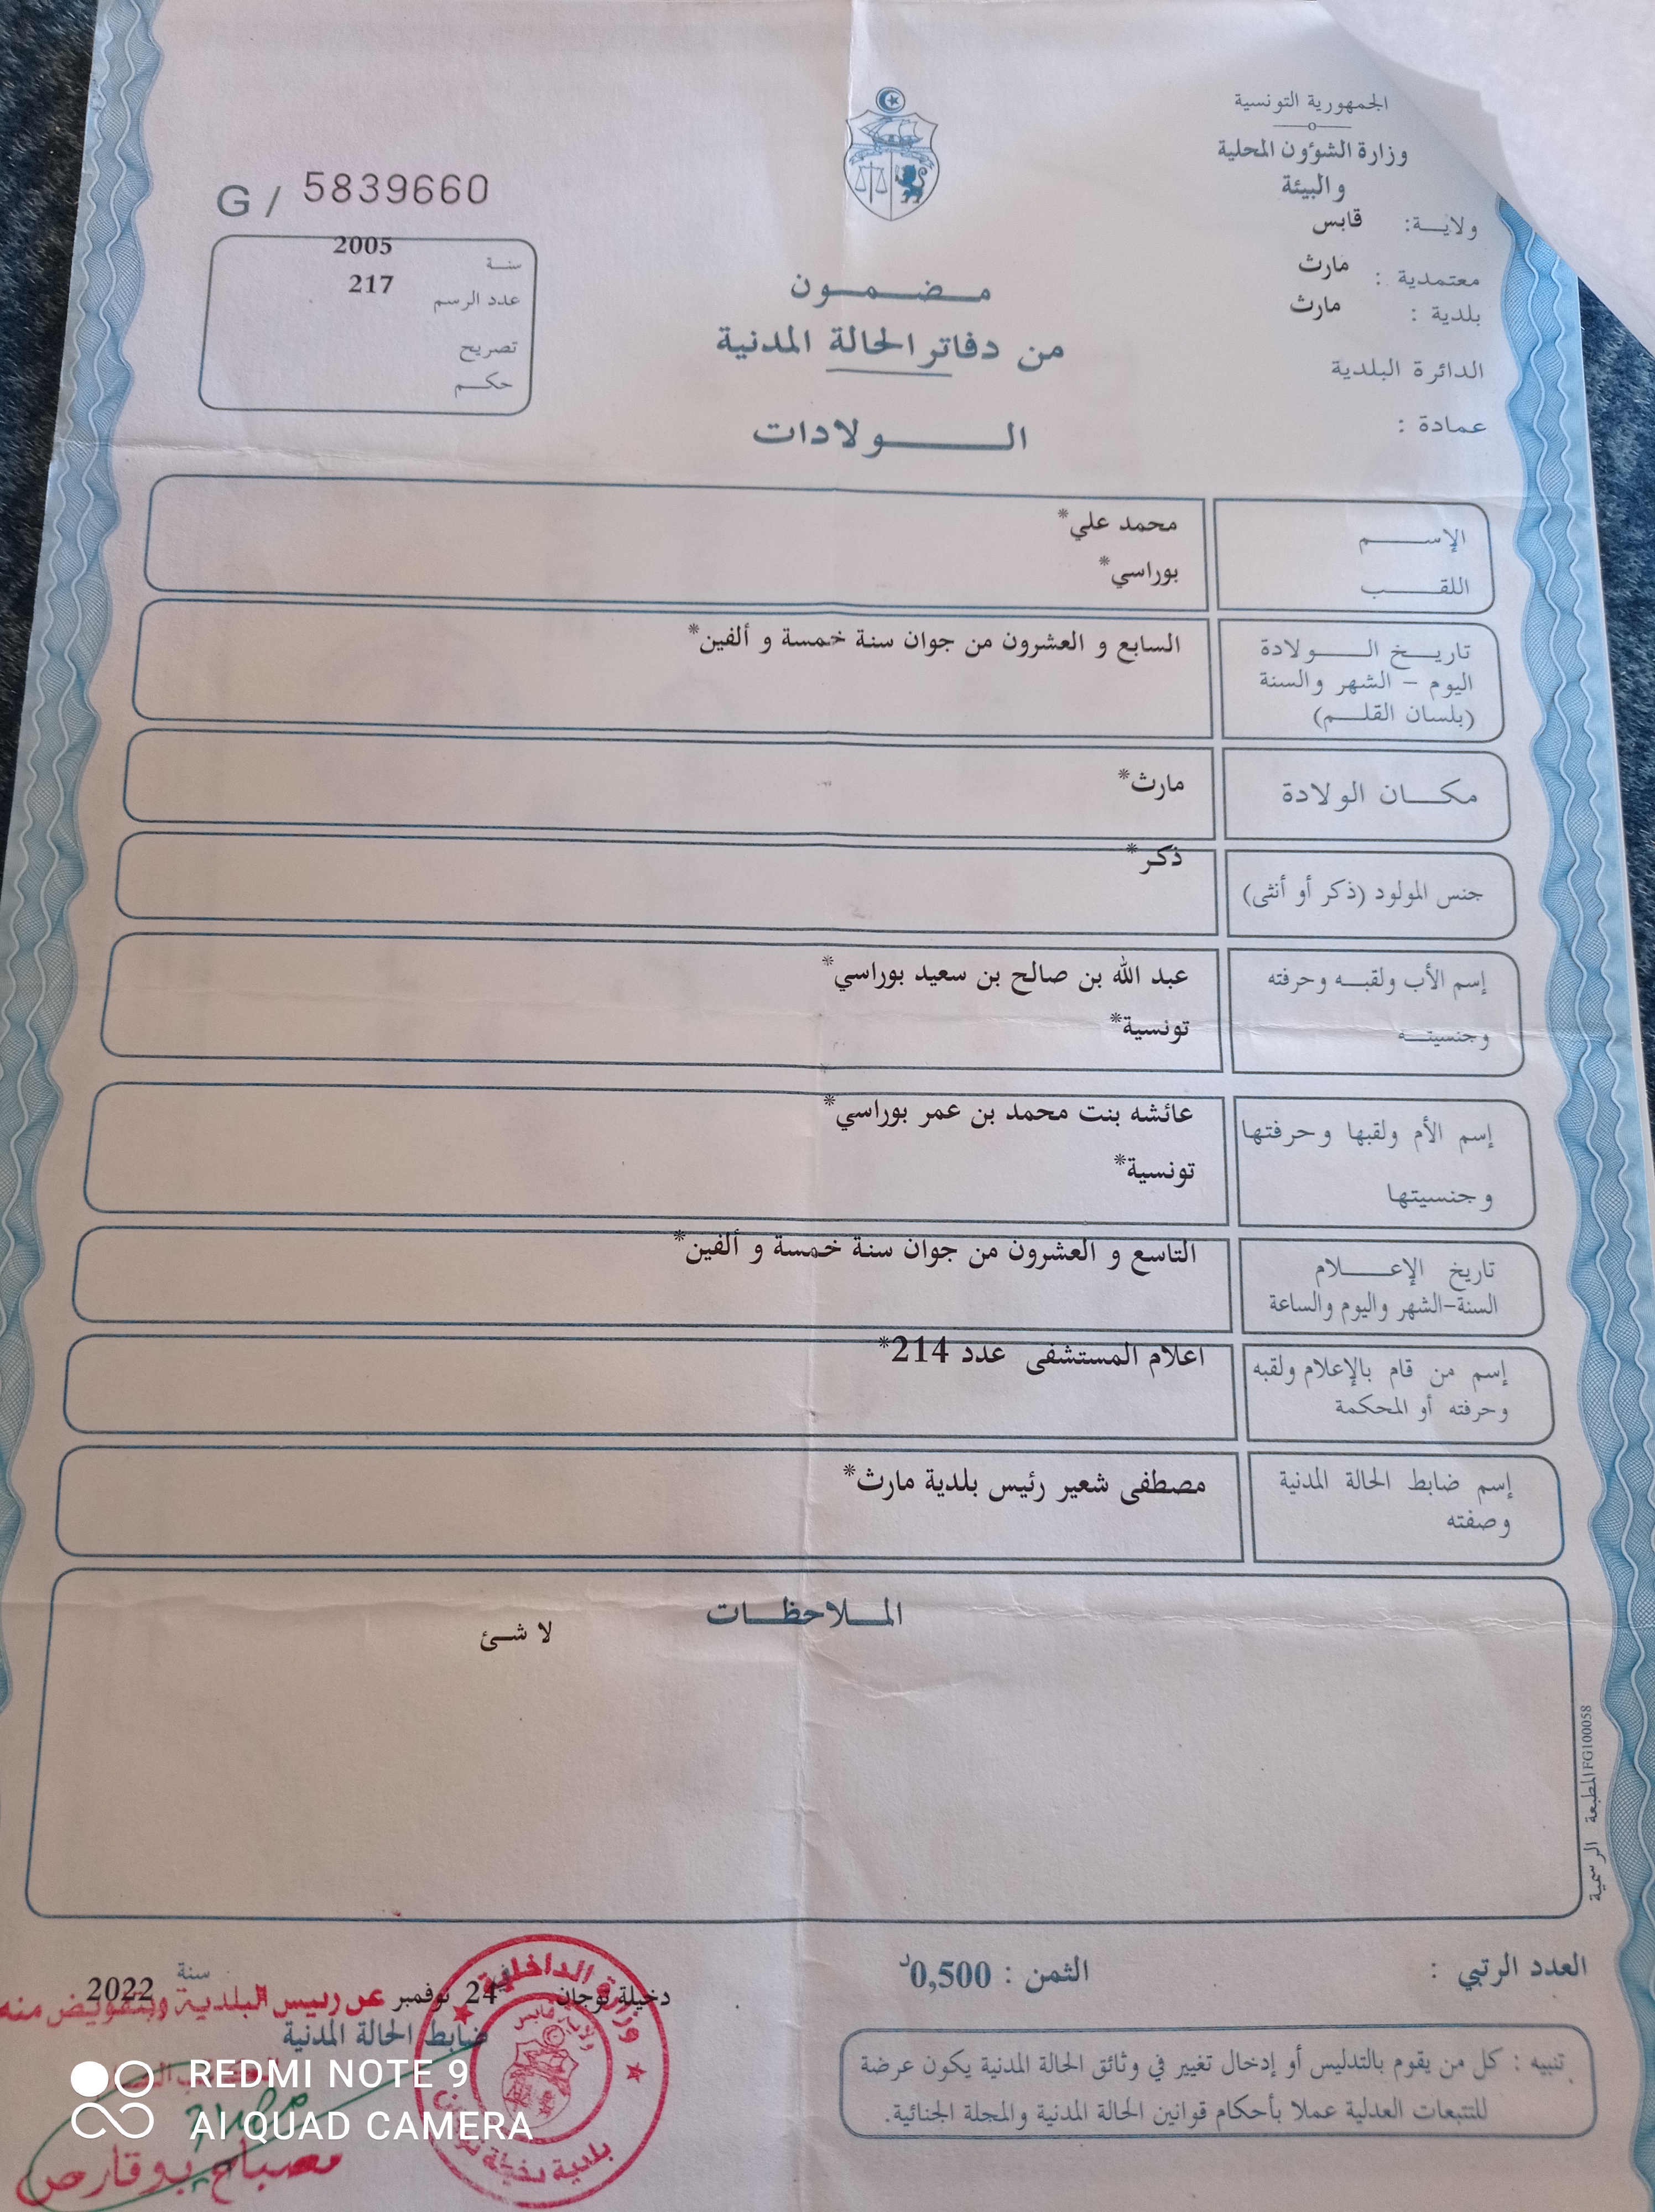 الجمهورية التونسية
وزارة الشؤون المحلية
والبيئة
ولاية: قابس
معتمدية : مارث
بلدية : مارث
الدائرة البلدية
عمادة :
G / 5839660
سنة 2005
عدد الرسم 217
تصريح
حكم
مضمون
من دفاتر الحالة المدنية
الولادات
الإسم محمد علي*
اللقب بوراسي*
تاريخ الولادة السابع و العشرون من جوان سنة خمسة و ألفين*
اليوم - الشهر والسنة
(بلسان القلم)
مكان الولادة مارث*
جنس المولود (ذكر أو أنثى) ذكر*
إسم الأب ولقبه وحرفته عبد الله بن صالح بن سعيد بوراسي*
وجنسيته تونسية*
إسم الأم ولقبها وحرفتها عائشه بنت محمد بن عمر بوراسي*
وجنسيتها تونسية*
تاريخ الإعلام التاسع و العشرون من جوان سنة خمسة و ألفين*
السنة-الشهر واليوم والساعة
إسم من قام بالإعلام ولقبه اعلام المستشفى عدد 214*
وحرفته أو المحكمة
إسم ضابط الحالة المدنية مصطفى شعير رئيس بلدية مارث*
وصفته
الملاحظات
لا شئ
المطبعة الرسمية FG100058
العدد الرتبي :
الثمن : 0,500د
دخيلة توجان في 24 نوفمبر سنة 2022
عن رئيس البلدية وبتفويض منه
ضابط الحالة المدنية
مصباح بوقارص
وزارة الداخلية
ولاية قابس
تنبيه : كل من يقوم بالتدليس أو إدخال تغيير في وثائق الحالة المدنية يكون عرضة
للتتبعات العدلية عملا بأحكام قوانين الحالة المدنية والمجلة الجنائية.
REDMI NOTE 9
AI QUAD CAMERA